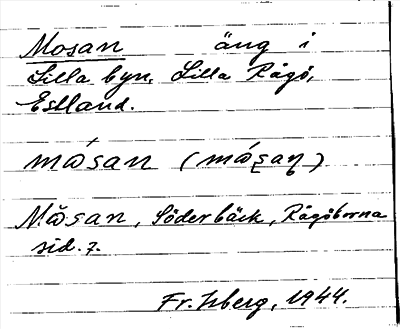 Mosan äng i
Lilla byn, Lilla Rågö,
Estland.
mǿsan (mǿʂaɳ)
Mø̆san, Söderbäck, Rågöborna
sid. 7.
Fr. Isberg, 1944.